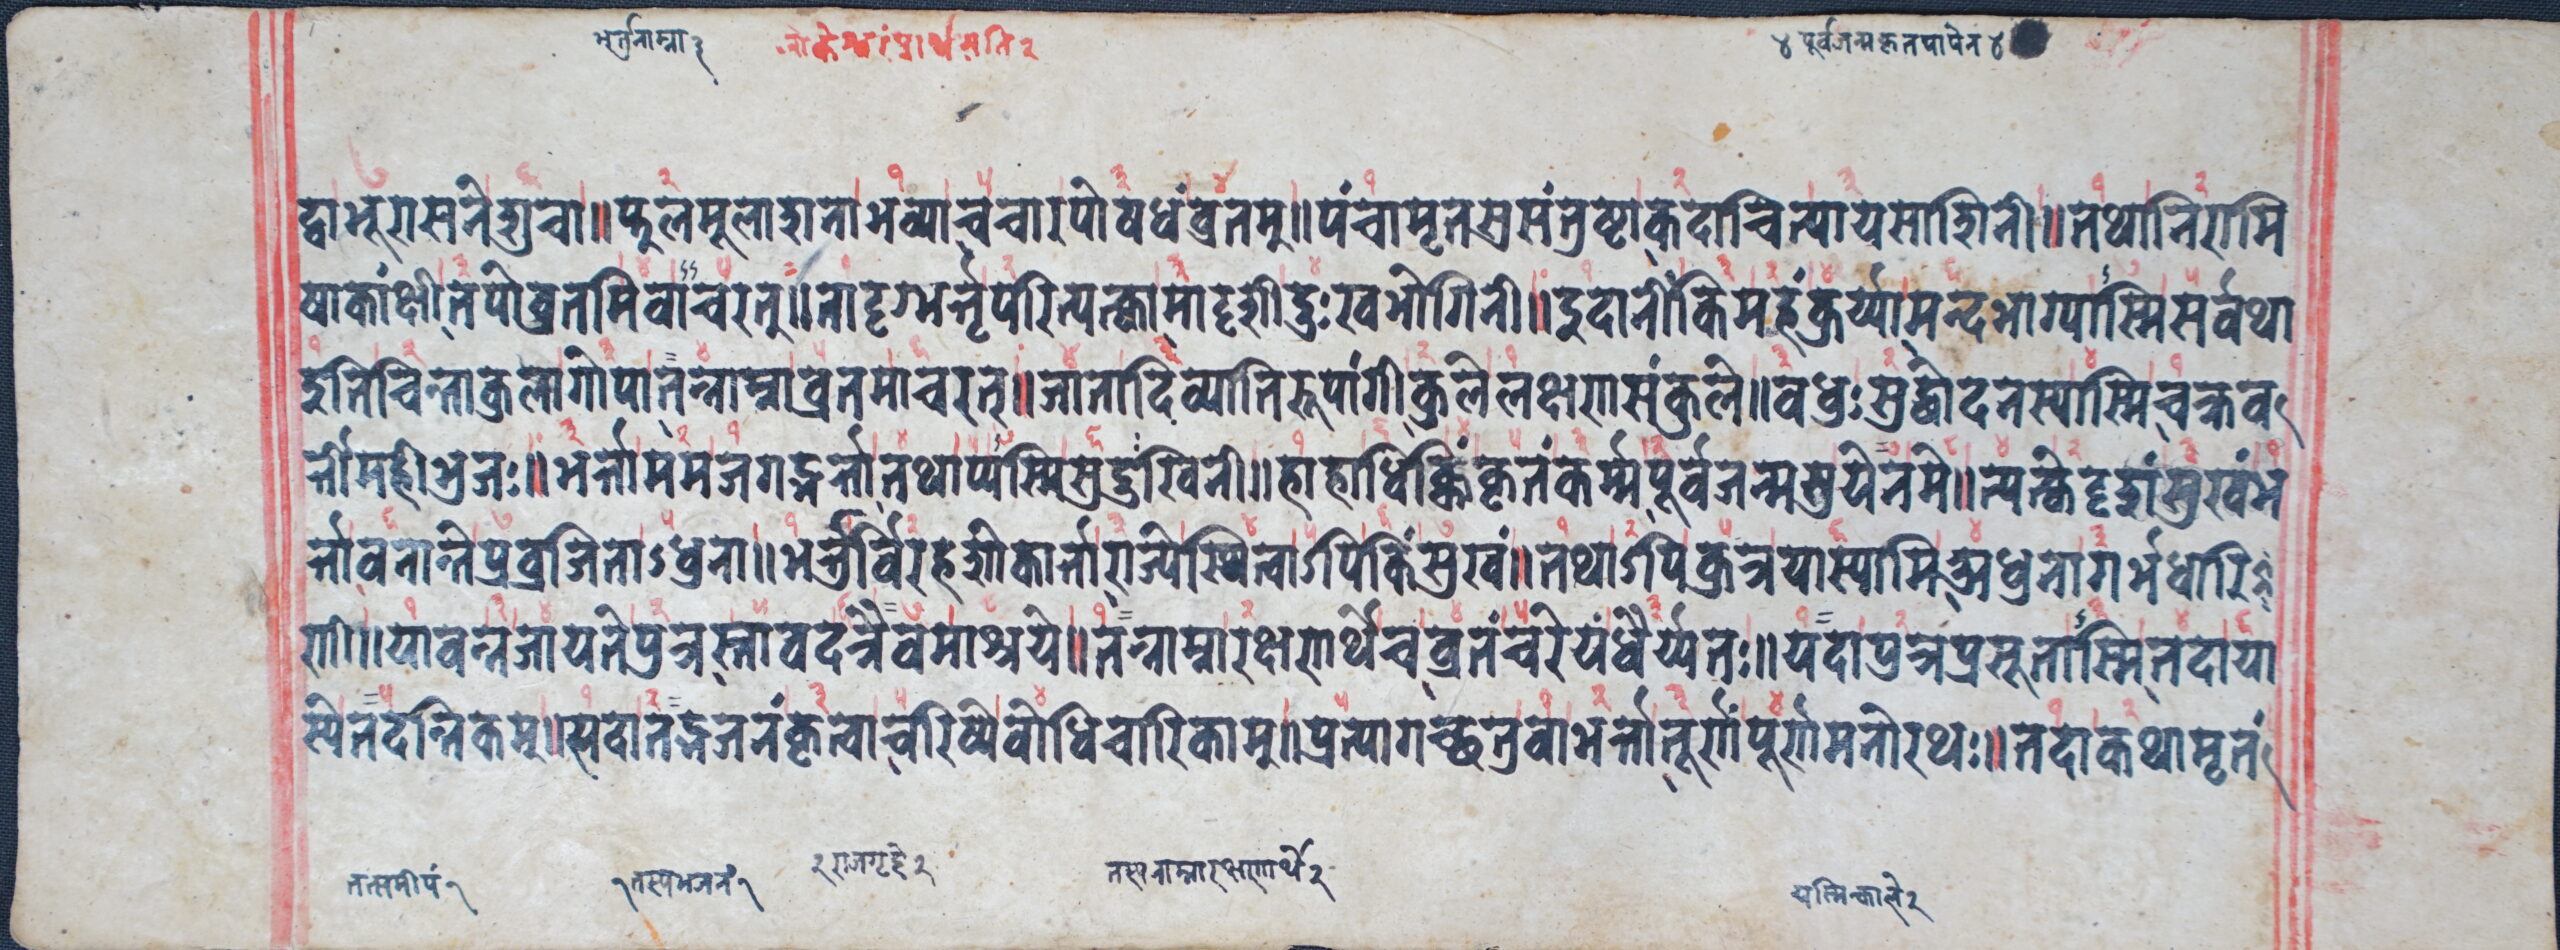 भर्तुनाम्ना ३ लोकेश्वरं प्रार्थयति २ ४ पूर्वजन्मकृतपापेन ४
द्वाभूरासनेशुचा॥ फुलमूलाशनाभव्याचचारपोषधंव्रतम्॥ पंचामृतसुसंतुष्टाकदाचित्पायसाशिनी॥ तथानिरामि
षाकांक्षीतपोव्रतमिवाचरत्॥ तादृग्भर्तृपरित्यक्तामादृशीदुःखभोगिनी॥ इदानींकिमहंकुर्य्यामन्दभाग्यास्मिसर्वथा
इतिचिन्ताकुलागोपातन्नाम्नाव्रतमाचरत्॥ जातादिव्यातिरूपांगीकुलेलक्षणसंकुले॥ वधुःसुद्धोदनस्यास्मिचक्रव
र्तीमहीभुजः॥ भर्त्ताममजगद्भर्त्तातथाप्यस्मिसुदुःखिनी॥ हाहाधिक्किंकृतंकर्म्मपूर्वजन्मसुयेनमे॥ त्यक्त्वेदृशंसुखंभ
र्त्तावनान्तेप्रव्रजितोऽधुना॥ भर्त्तुर्विरहशोकार्त्ताराज्येस्थित्वाऽपिकिंसुखं॥ तथाऽपिकुत्रयास्यामिअधुनागर्भधारि
णी॥ यावन्नजायतेपुत्रस्तावदत्रैवमाश्रये॥ तन्नाम्नारक्षणार्थेचव्रतंचरेयंधैर्य्यतः॥ यदापुत्रप्रसूतास्मितदाया
स्येतदन्तिकम्॥ सदातद्भजनंकृत्वाचरिष्येबोधिचारिकाम्॥ प्रत्यागच्छतुवाभर्त्तातूर्णंपूर्णमनोरथः॥ तदाकथामृतं
तत्समीपं १ १ तस्यभजनं १ २ राजगृहे २ तस्यनाम्नारक्षणार्थे २ यस्मिन्काले २